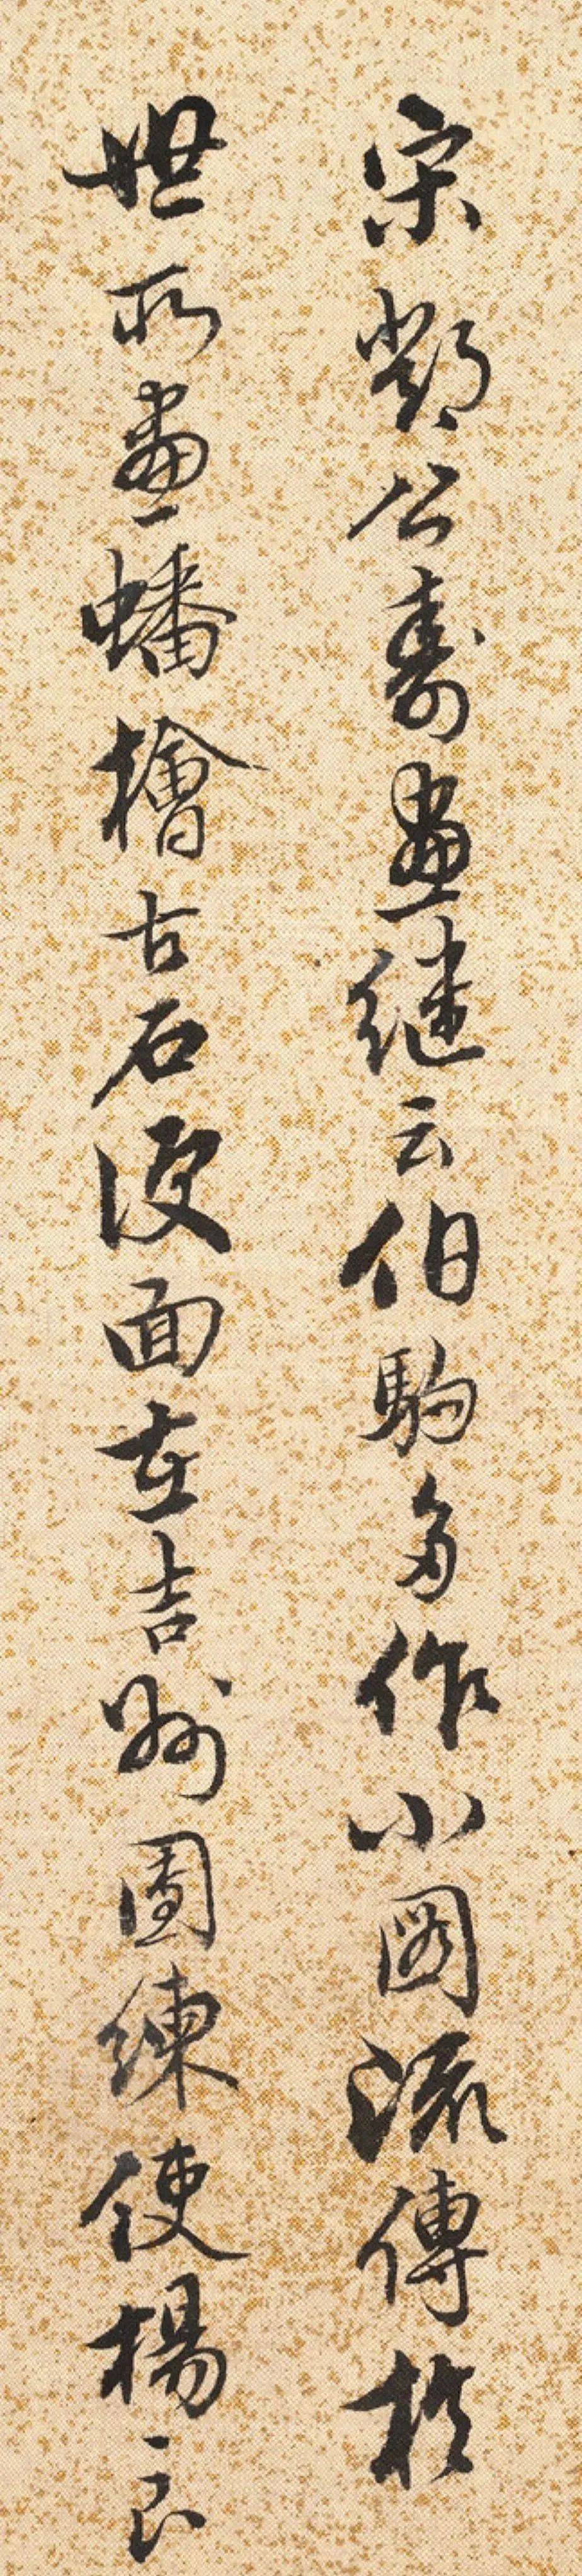 宋鄧公壽畫繼云伯駒多作小圖流傳於
世所畫蟠檜古石便面在吉州團練使楊良